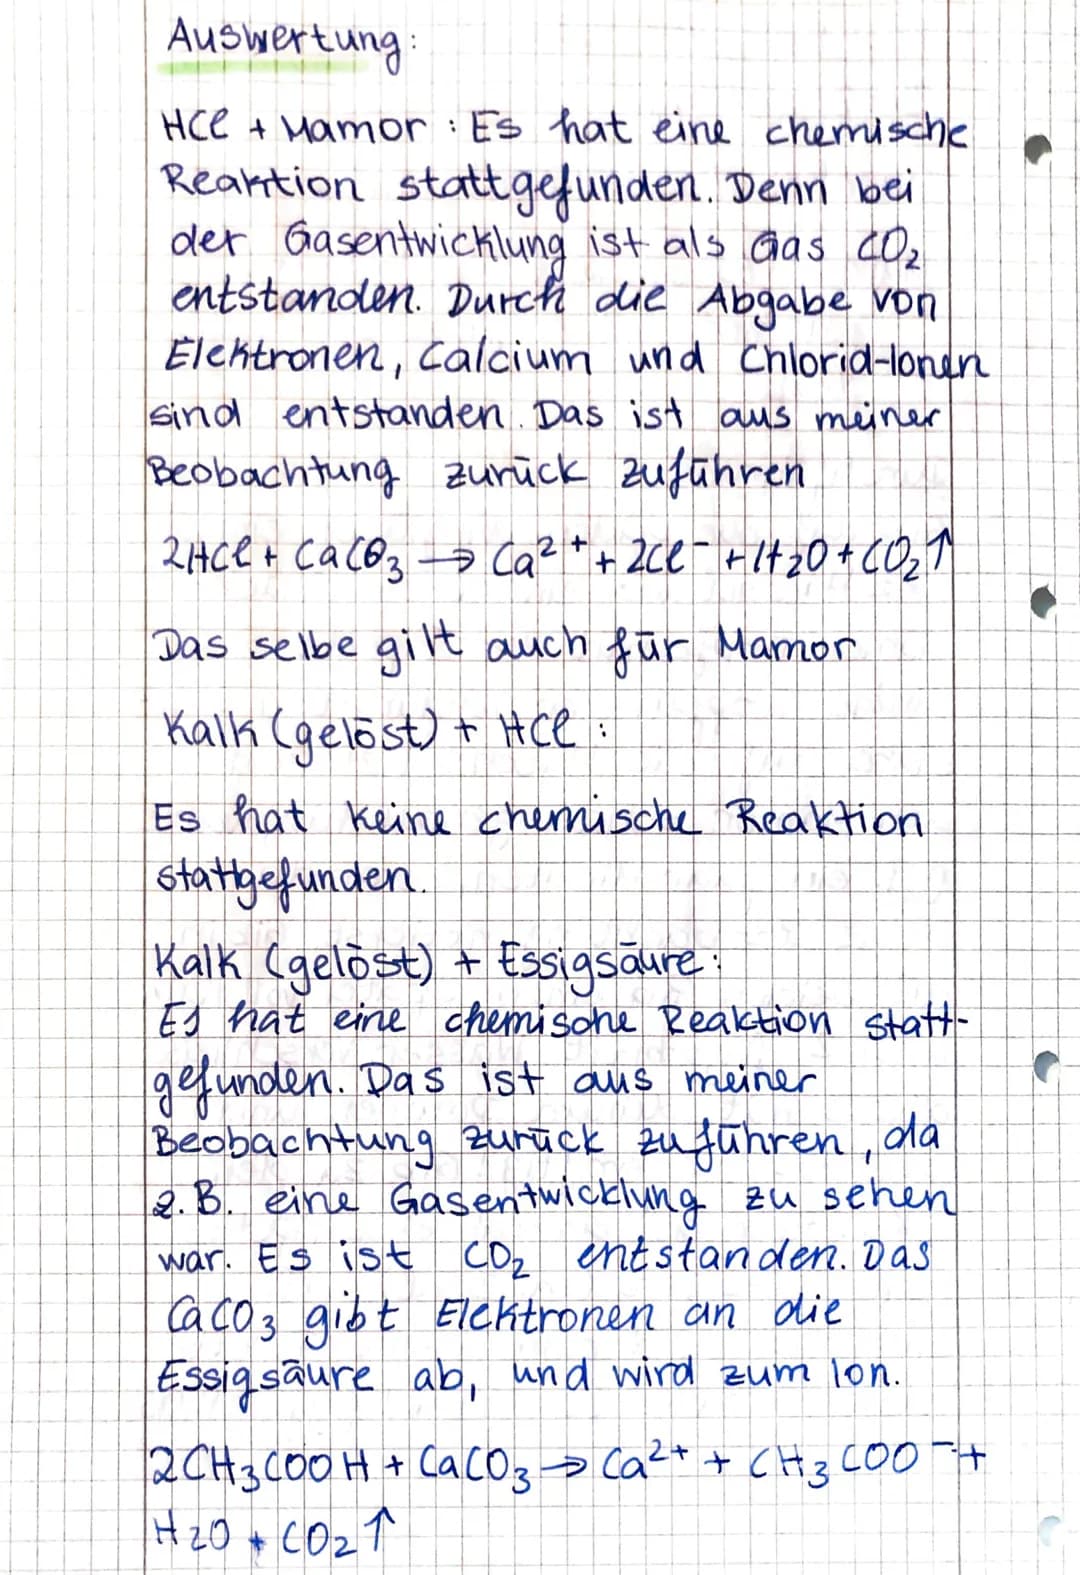 Auswertung:
HCl + Mamor : Es hat eine chemische
Reaktion stattgefunden. Denn bei
der Gasentwicklung ist als Gas CO₂
entstanden. Durch die Abgabe von
Elektronen, Calcium und Chlorid-Ionen
sind entstanden. Das ist aus meiner
Beobachtung zurück zuführen
2HCl + CaCO₃ → Ca²⁺ + 2Cl⁻ + H₂O + CO₂↑
Das selbe gilt auch für Mamor
Kalk (gelöst) + HCl :
Es hat keine chemische Reaktion
stattgefunden.
Kalk (gelöst) + Essigsäure :
Es hat eine chemische Reaktion statt-
gefunden. Das ist aus meiner
Beobachtung zurück zuführen, da
z.B. eine Gasentwicklung zu sehen
war. Es ist CO₂ entstanden. Das
CaCO₃ gibt Elektronen an die
Essigsäure ab, und wird zum Ion.
2CH₃COOH + CaCO₃ → Ca²⁺ + CH₃COO⁻ +
H₂O + CO₂↑